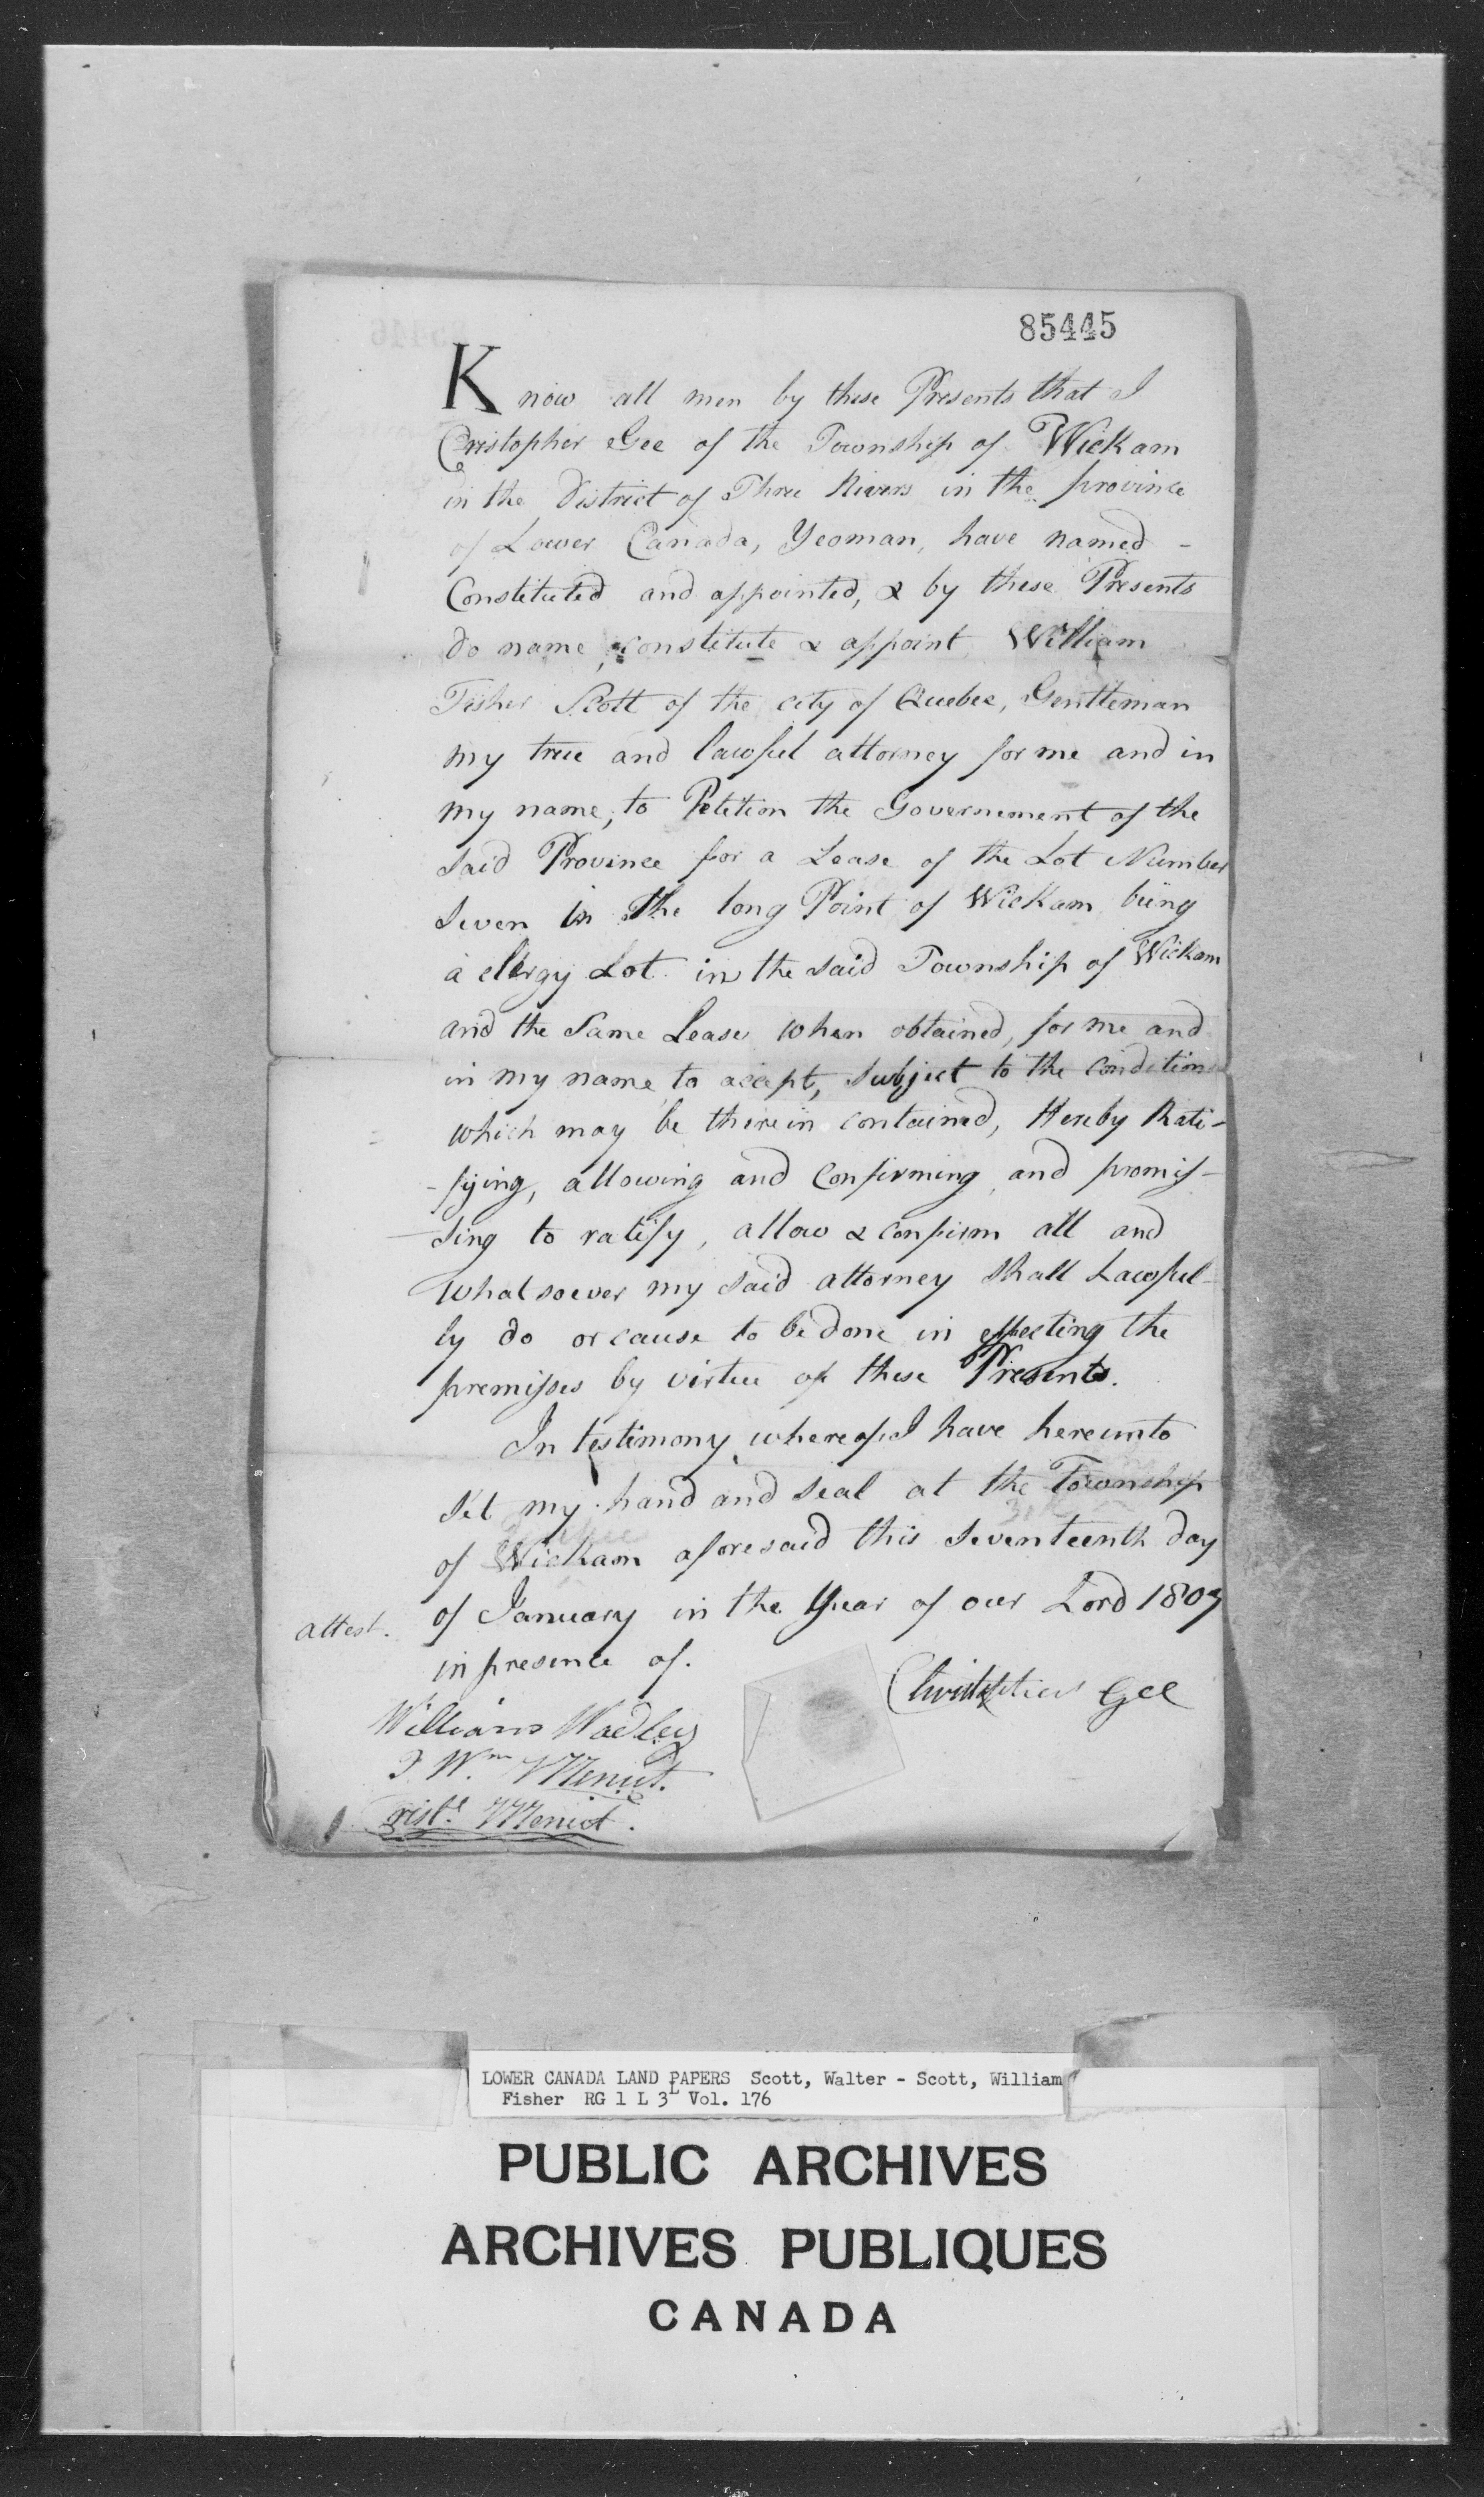 85445
Know all men by these Presents that I
Cristopher Gee of the Township of Wickam
in the District of Three Rivers in the province
of Lower Canada, Yeoman, have named -
Constituted and appointed, & by these Presents
do name, constitute & appoint William
Fisher Scott of the city of Quebec, Gentleman
my true and lawful attorney for me and in
my name, to Petition the Governement of the
Said Province for a Lease of the Lot Number
Seven in The long Point of Wickam being
a clergy Lot in the said Township of Wickam
and the Same Lease when obtained, for me and
in my name to accept, subject to the conditions
which may be therein contained, Hereby Rati-
-fying, allowing and Confirming and promis-
-sing to ratify, allow & confirm all and
Whatsoever my said attorney shall Lawful-
ly do or cause to be done in effecting the
premisses by virtue of these Presents.
In testimony whereof I have hereunto
Set my hand and seal at the Township
of Wickam aforesaid this Seventeenth day
of January in the Year of our Lord 1807
attest.
in presence of.
Christopher Gee
William Wadley
J. Wm Menut.
Menut.
LOWER CANADA LAND PAPERS Scott, Walter - Scott, William
Fisher RG 1 L 3L Vol. 176
PUBLIC ARCHIVES
ARCHIVES PUBLIQUES
CANADA